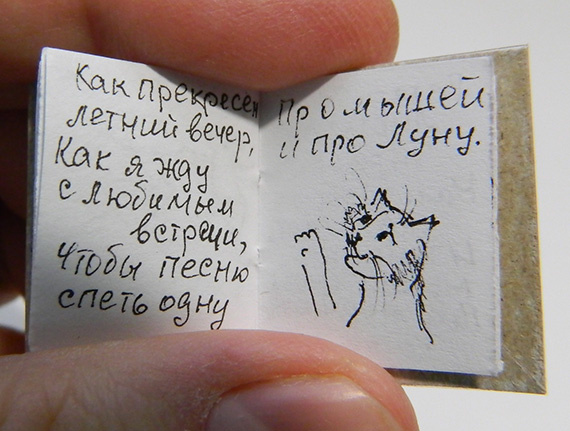 Как прекресен
летний вечер,
Как я жду
с любимым
встречи,
Чтобы песню
спеть одну
Про мышей
и про Луну.